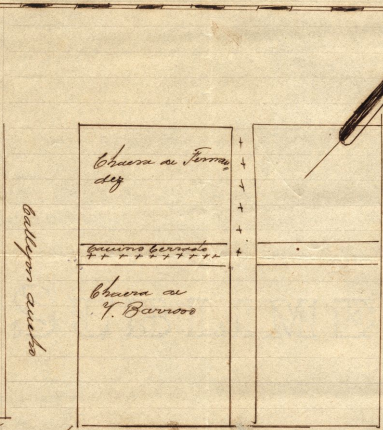 Chacra de Fernan=
dez
Camino Cerrado
Chacra de
Y. Barroso
Callejon ancho